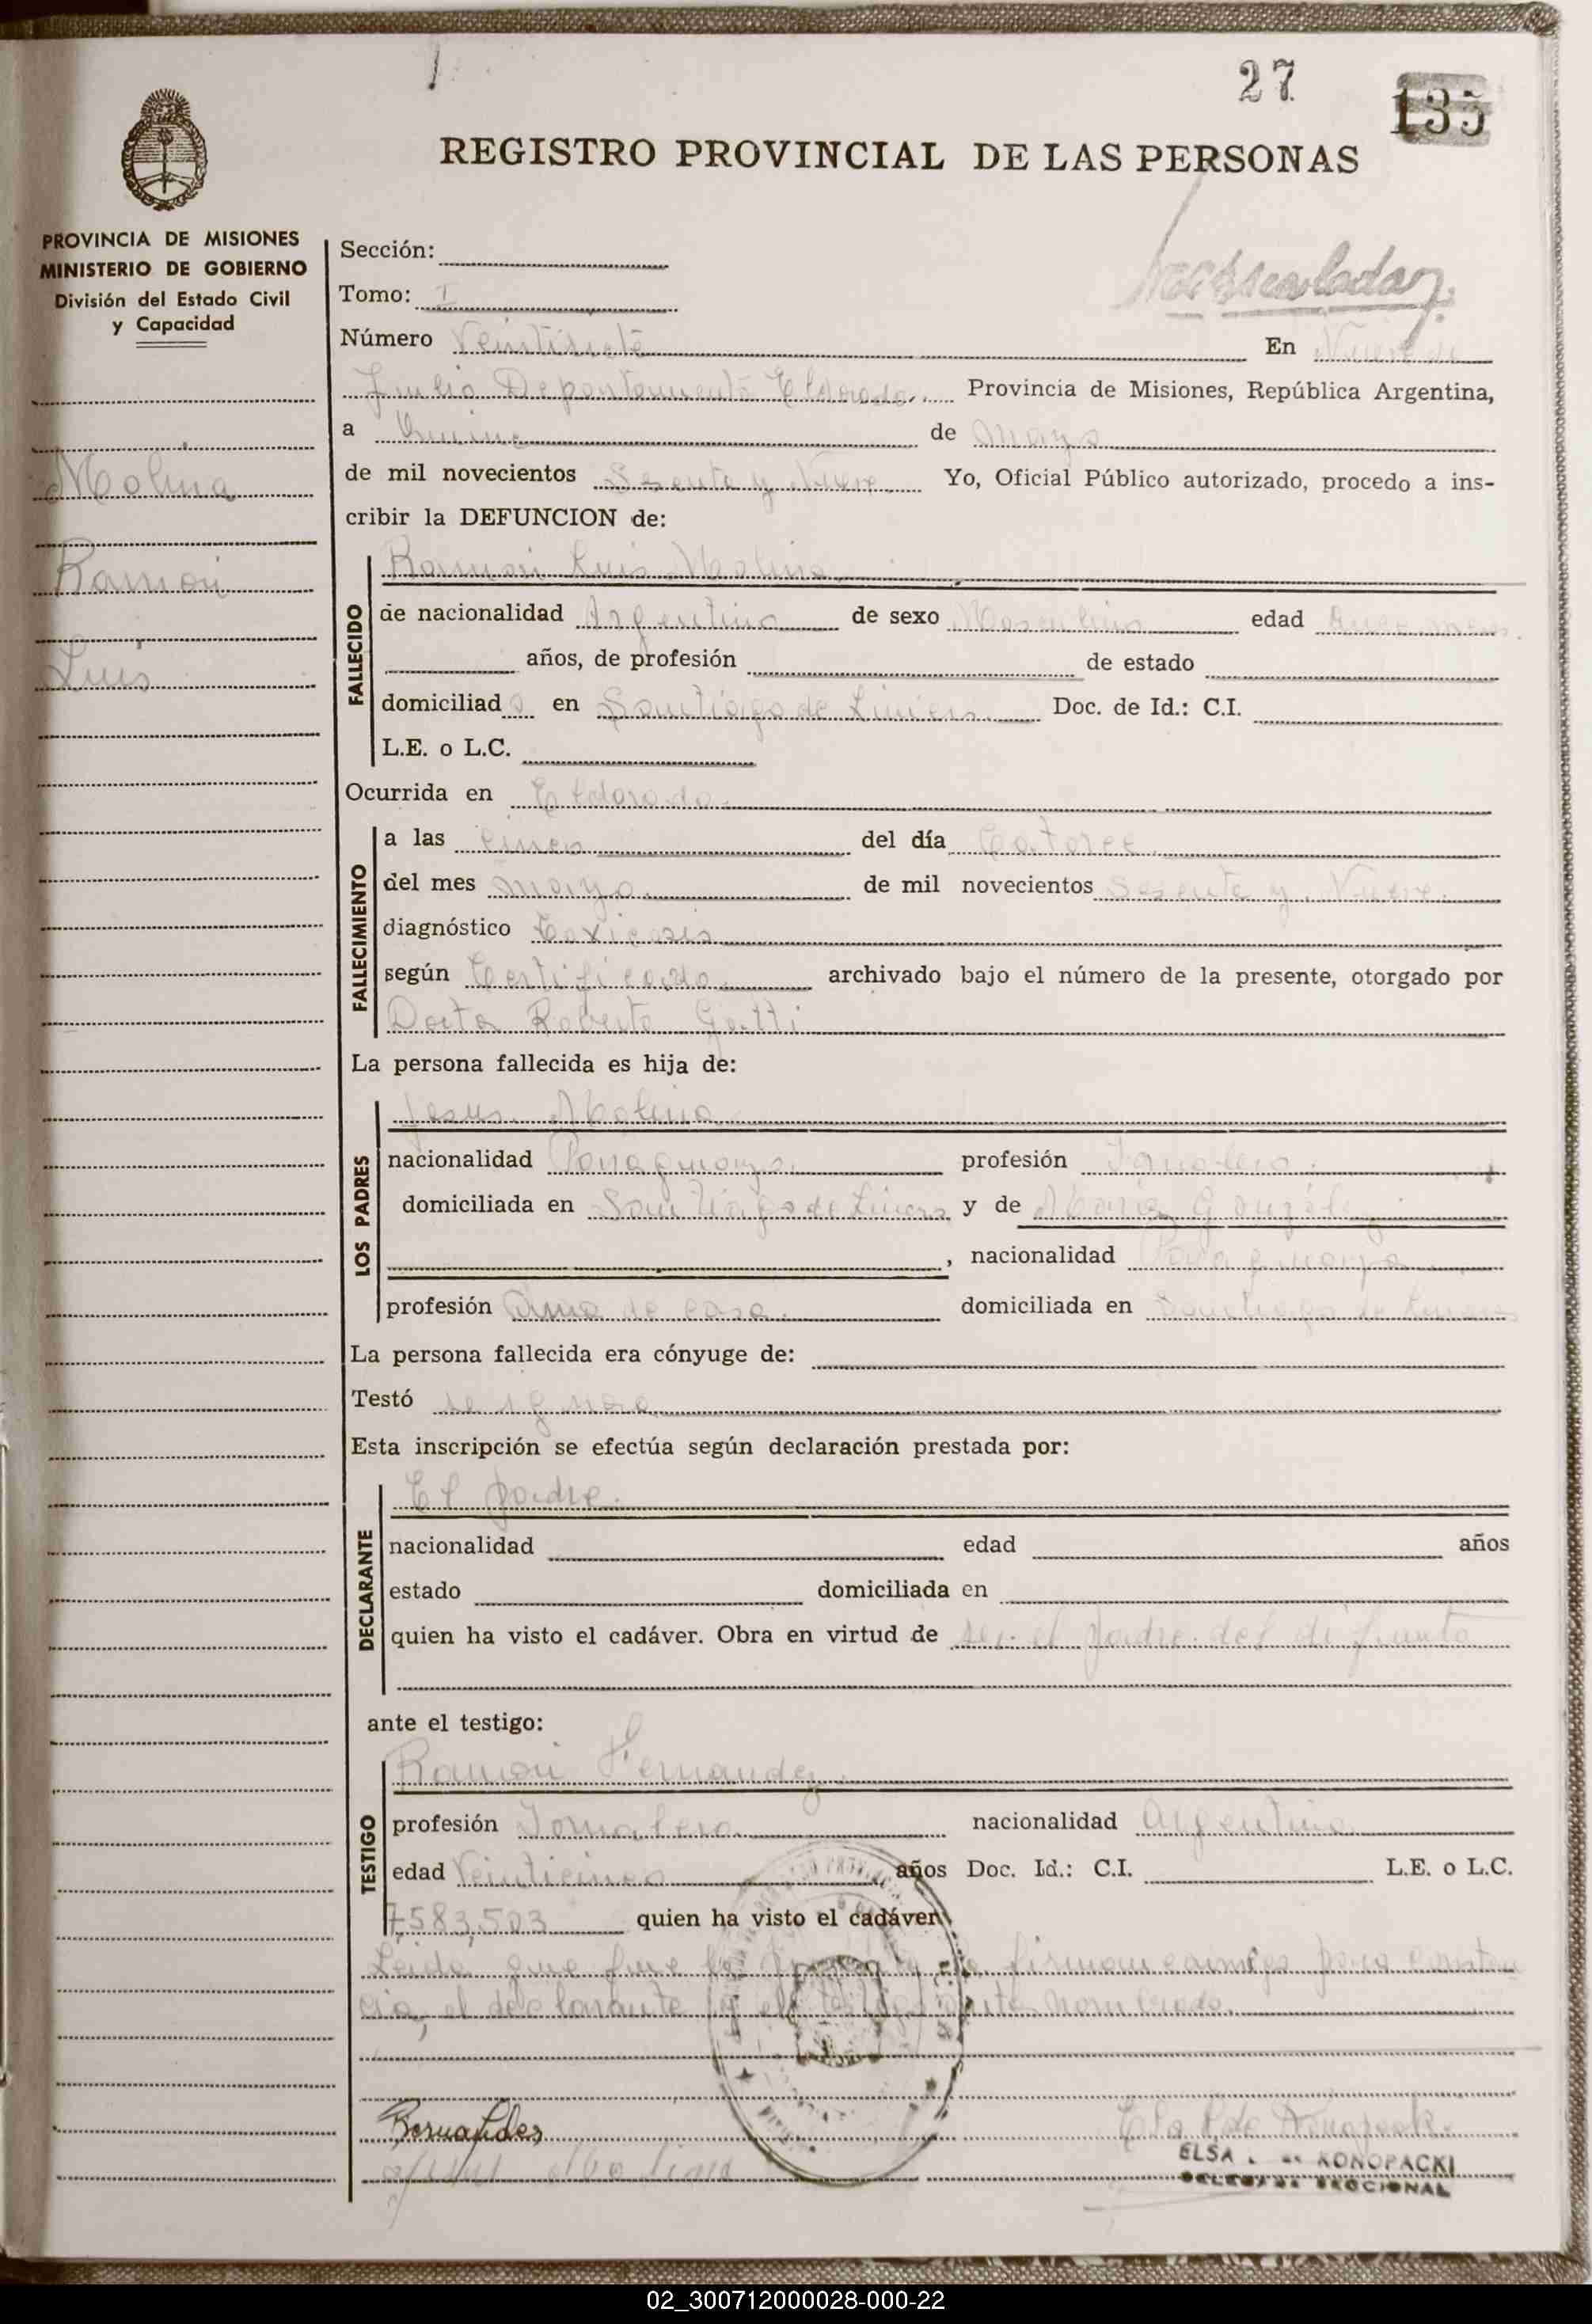 27
135
REGISTRO PROVINCIAL DE LAS PERSONAS
PROVINCIA DE MISIONES
MINISTERIO DE GOBIERNO
División del Estado Civil
y Capacidad
Molina
Ramon
Luis
Sección:
Tomo: I
Número Veintisiete En Nueve de
Julio Departamento Eldorado. Provincia de Misiones, República Argentina,
a Quince de Mayo
de mil novecientos Sesenta y Nueve. Yo, Oficial Público autorizado, procedo a ins-
cribir la DEFUNCION de:
FALLECIDO
Ramon Luis Molina
de nacionalidad Argentina de sexo Masculino edad meses
años, de profesión de estado
domiciliado en Santiago de Liniers. Doc. de Id.: C.I.
L.E. o L.C.
Ocurrida en Eldorado.
FALLECIMIENTO
a las Cinco del día Catorce
del mes mayo. de mil novecientos Sesenta y Nueve.
diagnóstico Toxicosis
según Certificado archivado bajo el número de la presente, otorgado por
Doctor Roberto Gatti
La persona fallecida es hija de:
LOS PADRES
Jesus Molina
nacionalidad Paraguaya. profesión Jornalero.
domiciliada en Santiago de Liniers y de Maria Gonzalez
, nacionalidad Paraguaya
profesión Ama de casa. domiciliada en Santiago de Liniers
La persona fallecida era cónyuge de:
Testó se ignora
Esta inscripción se efectúa según declaración prestada por:
DECLARANTE
El padre.
nacionalidad edad años
estado domiciliada en
quien ha visto el cadáver. Obra en virtud de ser el padre del difunto
ante el testigo:
TESTIGO
Ramon Fernandez
profesión Jornalero nacionalidad Argentina
edad Veinticinco años Doc. Id.: C.I. L.E. o L.C.
7,583,503 quien ha visto el cadáver
Leida que fue la presente la firman conmigo para constan
cia, el declarante y el testigo antes nombrado.
ELSA KONOPACKI
DELEGADA SECCIONAL
02_300712000028-000-22